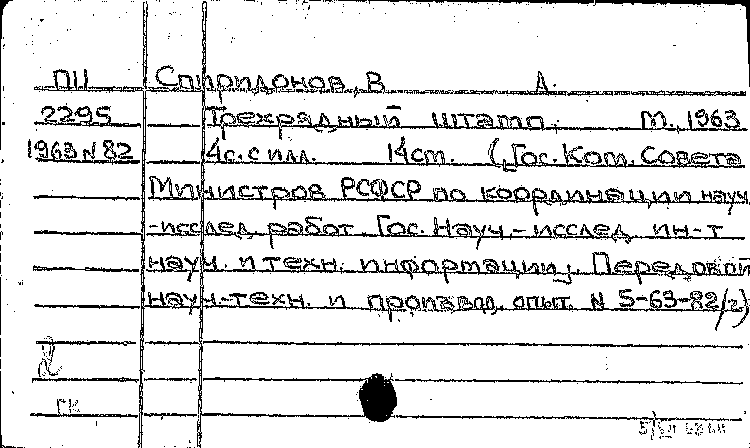 ПII Спиридонов, В. А.
2295 Трехрядный штамп. М., 1963
1963 N 82 4с. с илл. 14 см. (Гос. Ком. Совета
Министров РСФСР по координации науч.
-исслед. работ. Гос. Науч.-исслед. ин-т
науч. и техн. информации. Передовой
науч.-техн. и производ. опыт. N 5-63-82/2)
ГК